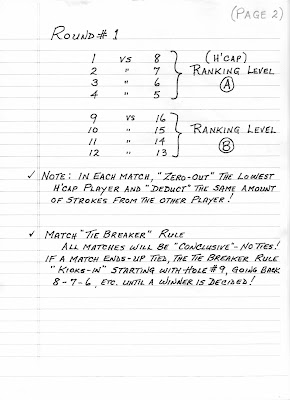 (PAGE 2)
ROUND # 1
1 VS 8 (H'CAP)
2 " 7 RANKING LEVEL
3 " 6 Ⓐ
4 " 5
9 VS 16
10 " 15 RANKING LEVEL
11 " 14 Ⓑ
12 " 13
✓ NOTE: IN EACH MATCH, "ZERO-OUT" THE LOWEST
H'CAP PLAYER AND "DEDUCT" THE SAME AMOUNT
OF STROKES FROM THE OTHER PLAYER!
✓ MATCH "TIE BREAKER" RULE
ALL MATCHES WILL BE "CONCLUSIVE" - NO TIES!
IF A MATCH ENDS-UP TIED, THE TIE BREAKER RULE
"KICKS-IN" STARTING WITH HOLE #9, GOING BACK
8-7-6, ETC. UNTIL A WINNER IS DECIDED!